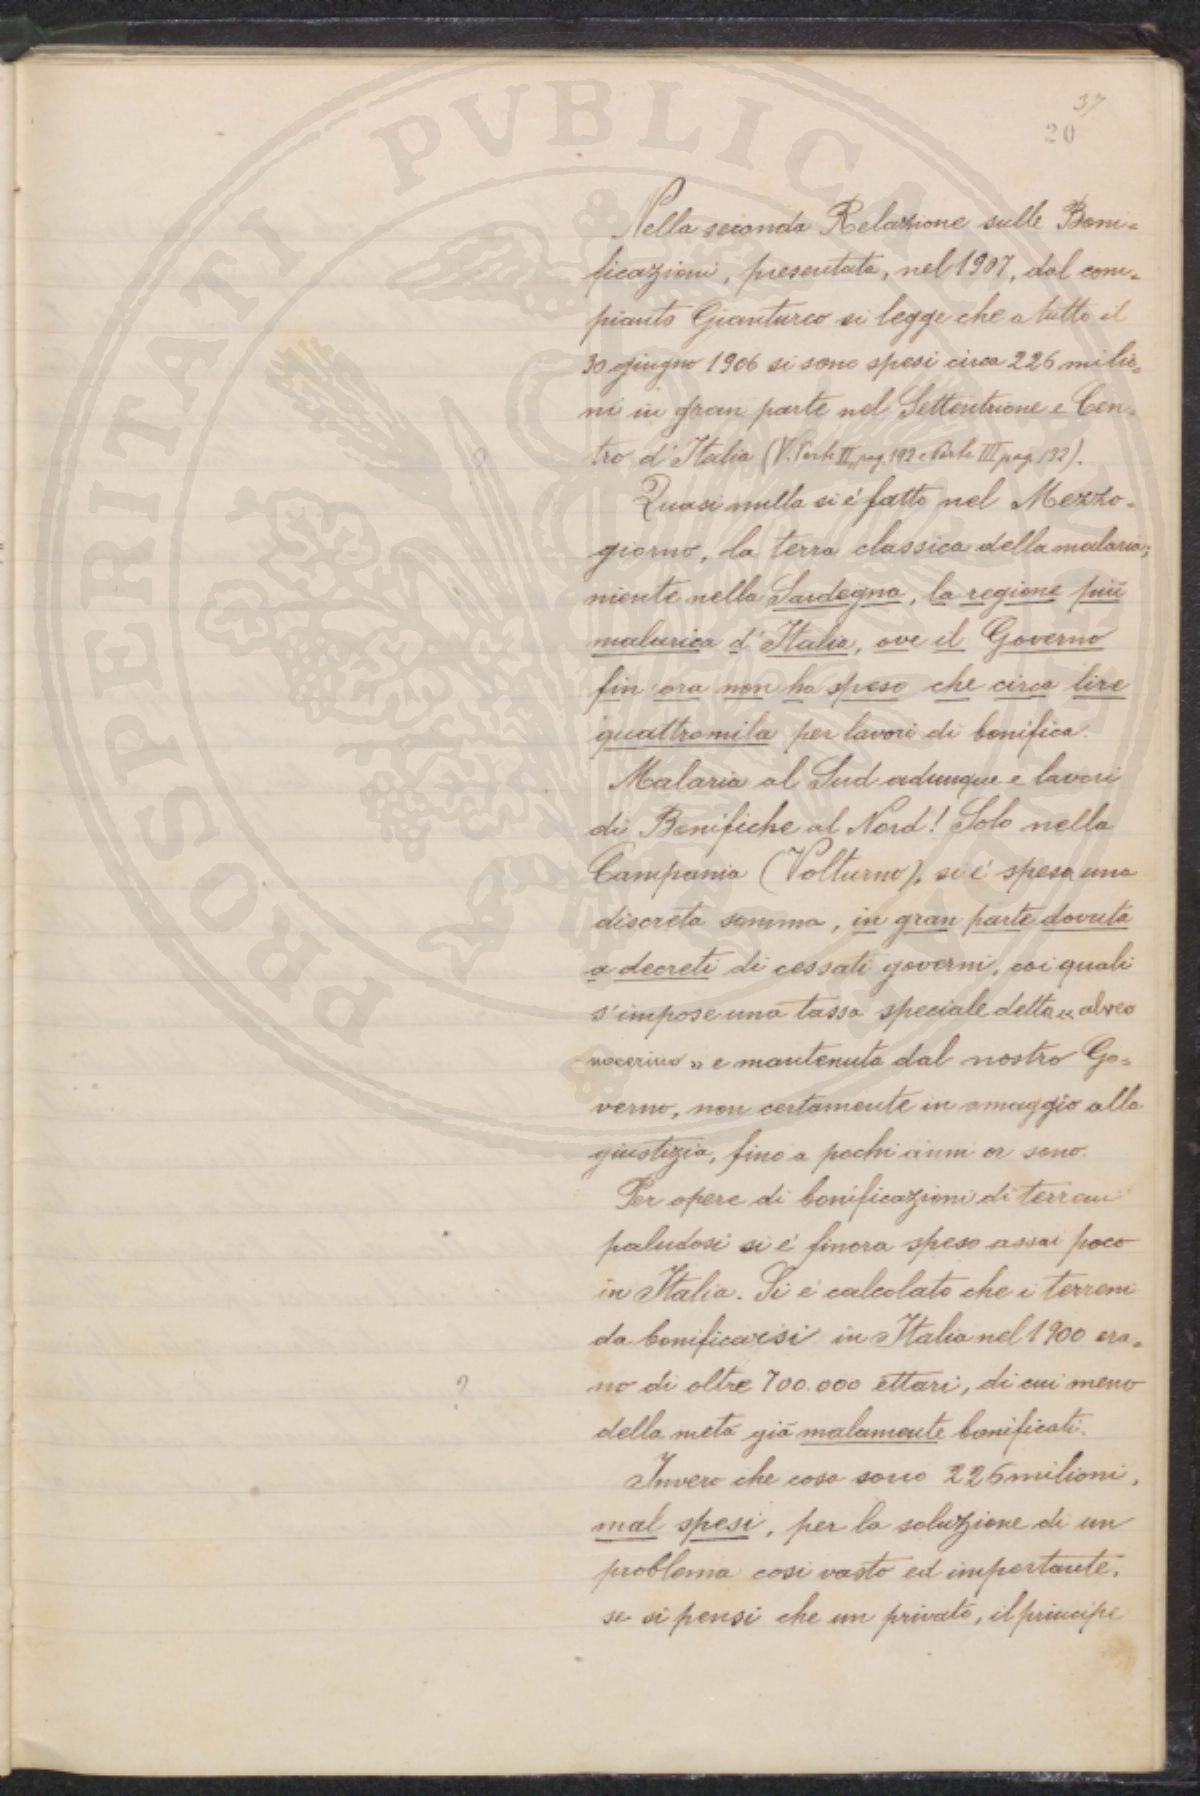 37
20
PROSPERITATI PVBLICAE
Nella seconda Relazione sulle Boni=
ficazioni, presentata, nel 1907, dal com=
pianto Gianturco si legge che a tutto il
30 giugno 1906 si sono spesi circa 226 milio=
ni in gran parte nel Settentrione e Cen=
tro d'Italia (V. Parte II, pag. 192 e Parte III pag. 132).
Quasi nulla si è fatto nel Mezzo=
giorno, la terra classica della malaria;
niente nella Sardegna, la regione più
malarica d'Italia, ove il Governo
fin'ora non ha speso che circa lire
quattromila per lavori di bonifica.
Malaria al Sud adunque e lavori
di Bonifiche al Nord! Solo nella
Campania (Volturno), si è spesa una
discreta somma, in gran parte dovuta
a decreti di cessati governi, coi quali
s'impose una tassa speciale detta « alveo
nocerino » e mantenuta dal nostro Go=
verno, non certamente in omaggio alla
giustizia, fino a pochi anni or sono.
Per opere di bonificazioni di terreni
paludosi si è finora speso assai poco
in Italia. Si è calcolato che i terreni
da bonificarsi in Italia nel 1900 era=
no di oltre 700.000 ettari, di cui meno
?
della metà già malamente bonificati.
Invero che cosa sono 226 milioni,
mal spesi, per la soluzione di un
problema così vasto ed importante,
se si pensi che un privato, il principe